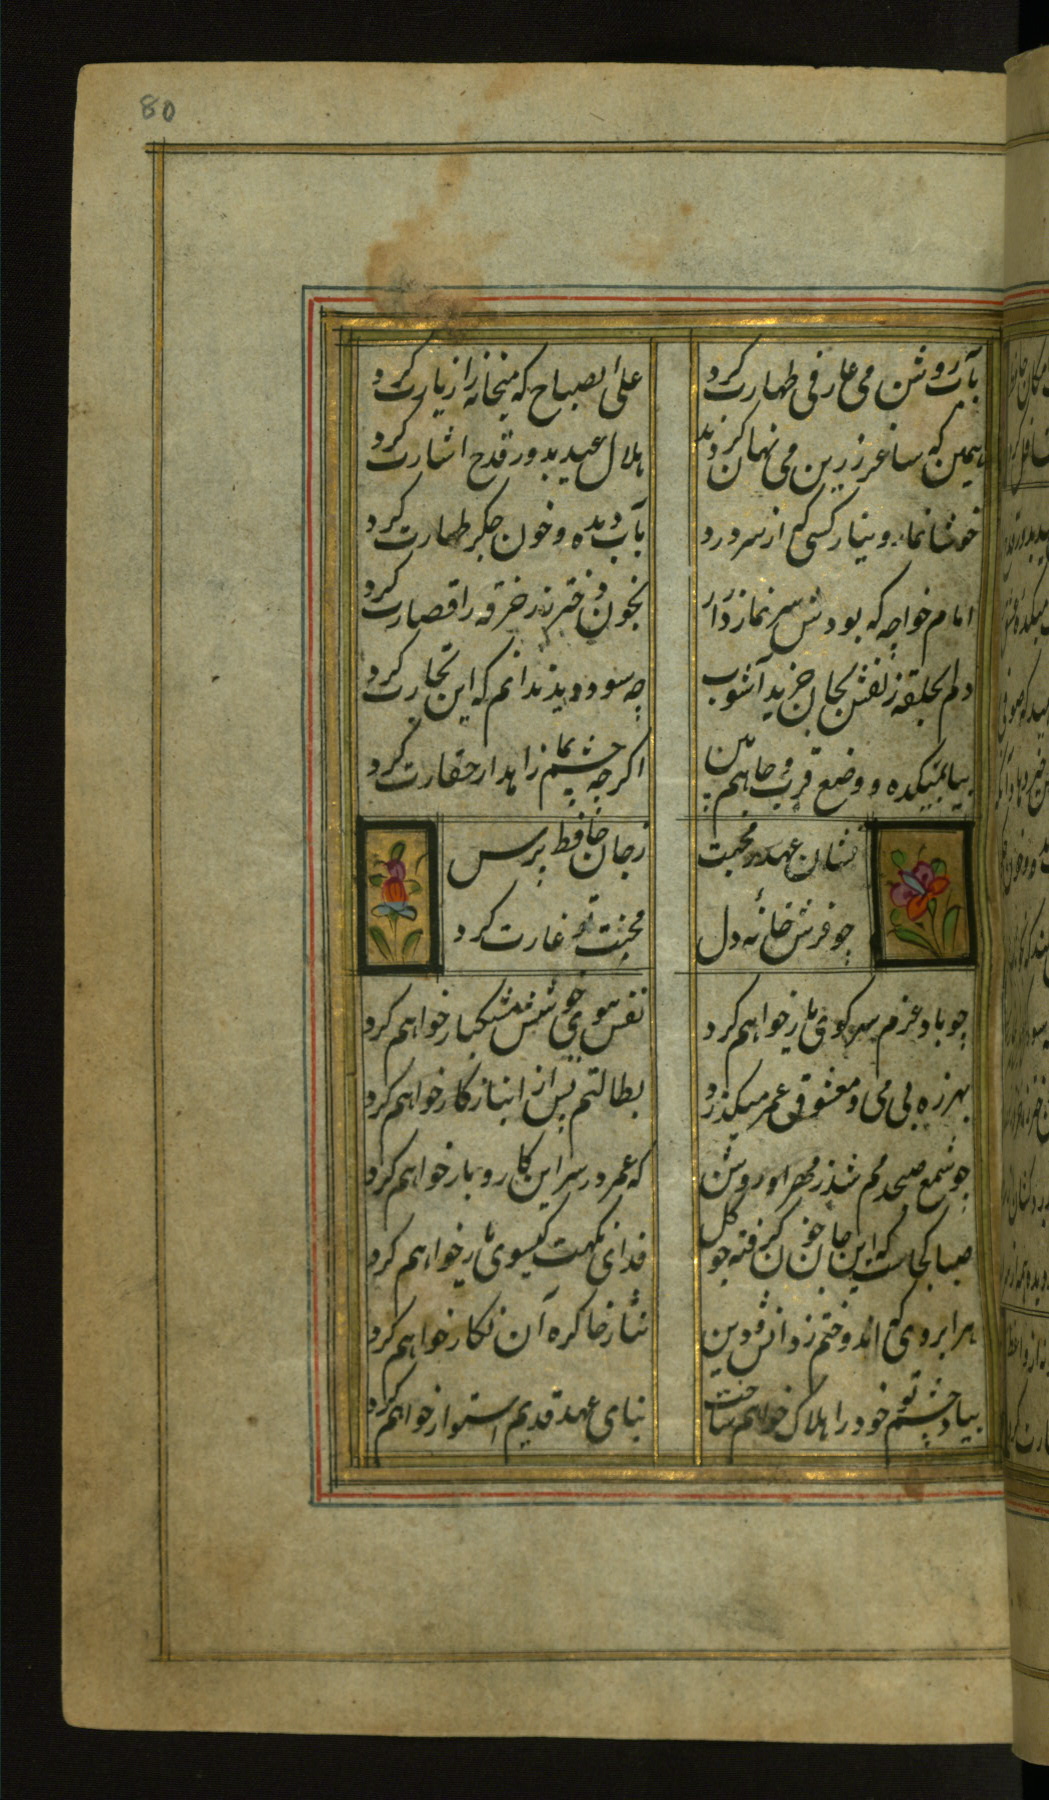 80
بآب روشن می عارفی طهارت کرد
علی الصباح که میخانه را زیارت کرد
همین که ساغر زرین می نهان کردند
هلال عید بدور قدح اشارت کرد
خوشا نماز و نیاز کسی که از سر درد
بآب دیده و خون جگر طهارت کرد
امام خواجه که بودش سر نماز دراز
بخون دختر رز خرقه را قصارت کرد
دلم بحلقه زلفش بجان خرید آشوب
چه سود دید ندانم که این تجارت کرد
بیا بمیکده و وضع قرب و جاهم بین
اگرچه چشم بما زاهد از حقارت کرد
نشان عهد و محبت
زجان حافظ پرس
چو فرش خانه دل
محبت تو غارت کرد
چو باد عزم سر کوی یار خواهم کرد
نفس ببوی خوشش مشکبار خواهم کرد
بهرزه بی می و معشوق عمر میگذرد
بطالتم بس از انباز کار خواهم کرد
چو شمع صبحدمم شد ز مهر او روشن
که عمر در سر این کار و بار خواهم کرد
صبا کجاست که این جان خون گرفته چو گل
فدای نکهت گیسوی یار خواهم کرد
هر ابروی که اندوختم ز دانش و دین
نثار خاک ره آن نگار خواهم کرد
بیاد چشم تو خود را هلاک خواهم ساخت
بنای عهد قدیم استوار خواهم کرد